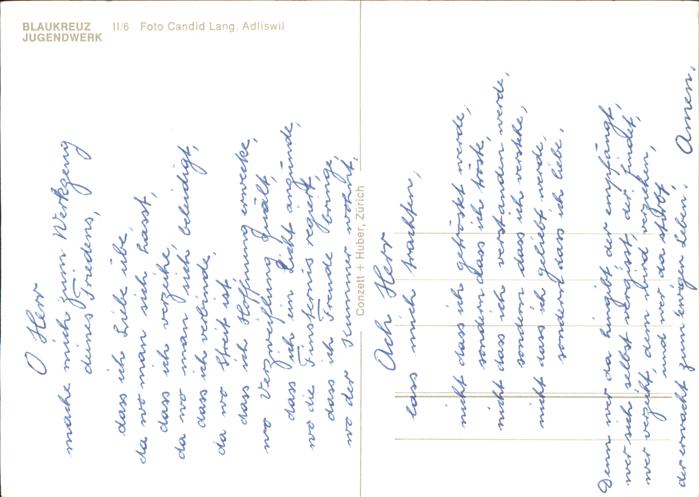 BLAUKREUZ
JUGENDWERK
II/6 Foto Candid Lang, Adliswil
Conzett + Huber, Zürich
O Herr
mache mich zum Werkzeug
deines Friedens,
dass ich Liebe übe,
da wo man sich hasst,
dass ich verzeihe,
da wo man sich beleidigt,
dass ich verbinde,
da wo Streit ist,
dass ich Hoffnung erwecke,
wo Verzweiflung quält,
dass ich ein Licht anzünde,
wo die Finsternis regiert,
dass ich Freude bringe,
wo der Kummer wohnt.
Ach Herr
lass mich trachten,
nicht dass ich getröstet werde,
sondern dass ich tröste,
nicht dass ich verstanden werde,
sondern dass ich verstehe,
nicht dass ich geliebt werde,
sondern dass ich liebe.
Denn wer da hingibt der empfängt,
wer sich selbst vergisst, der findet,
wer verzeiht, dem wird verziehen,
und wer da stirbt
der erwacht zum ewigen Leben. Amen.